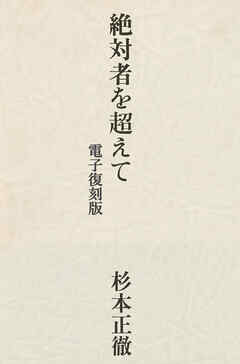 絶対者を超えて
電子復刻版
杉本正徹